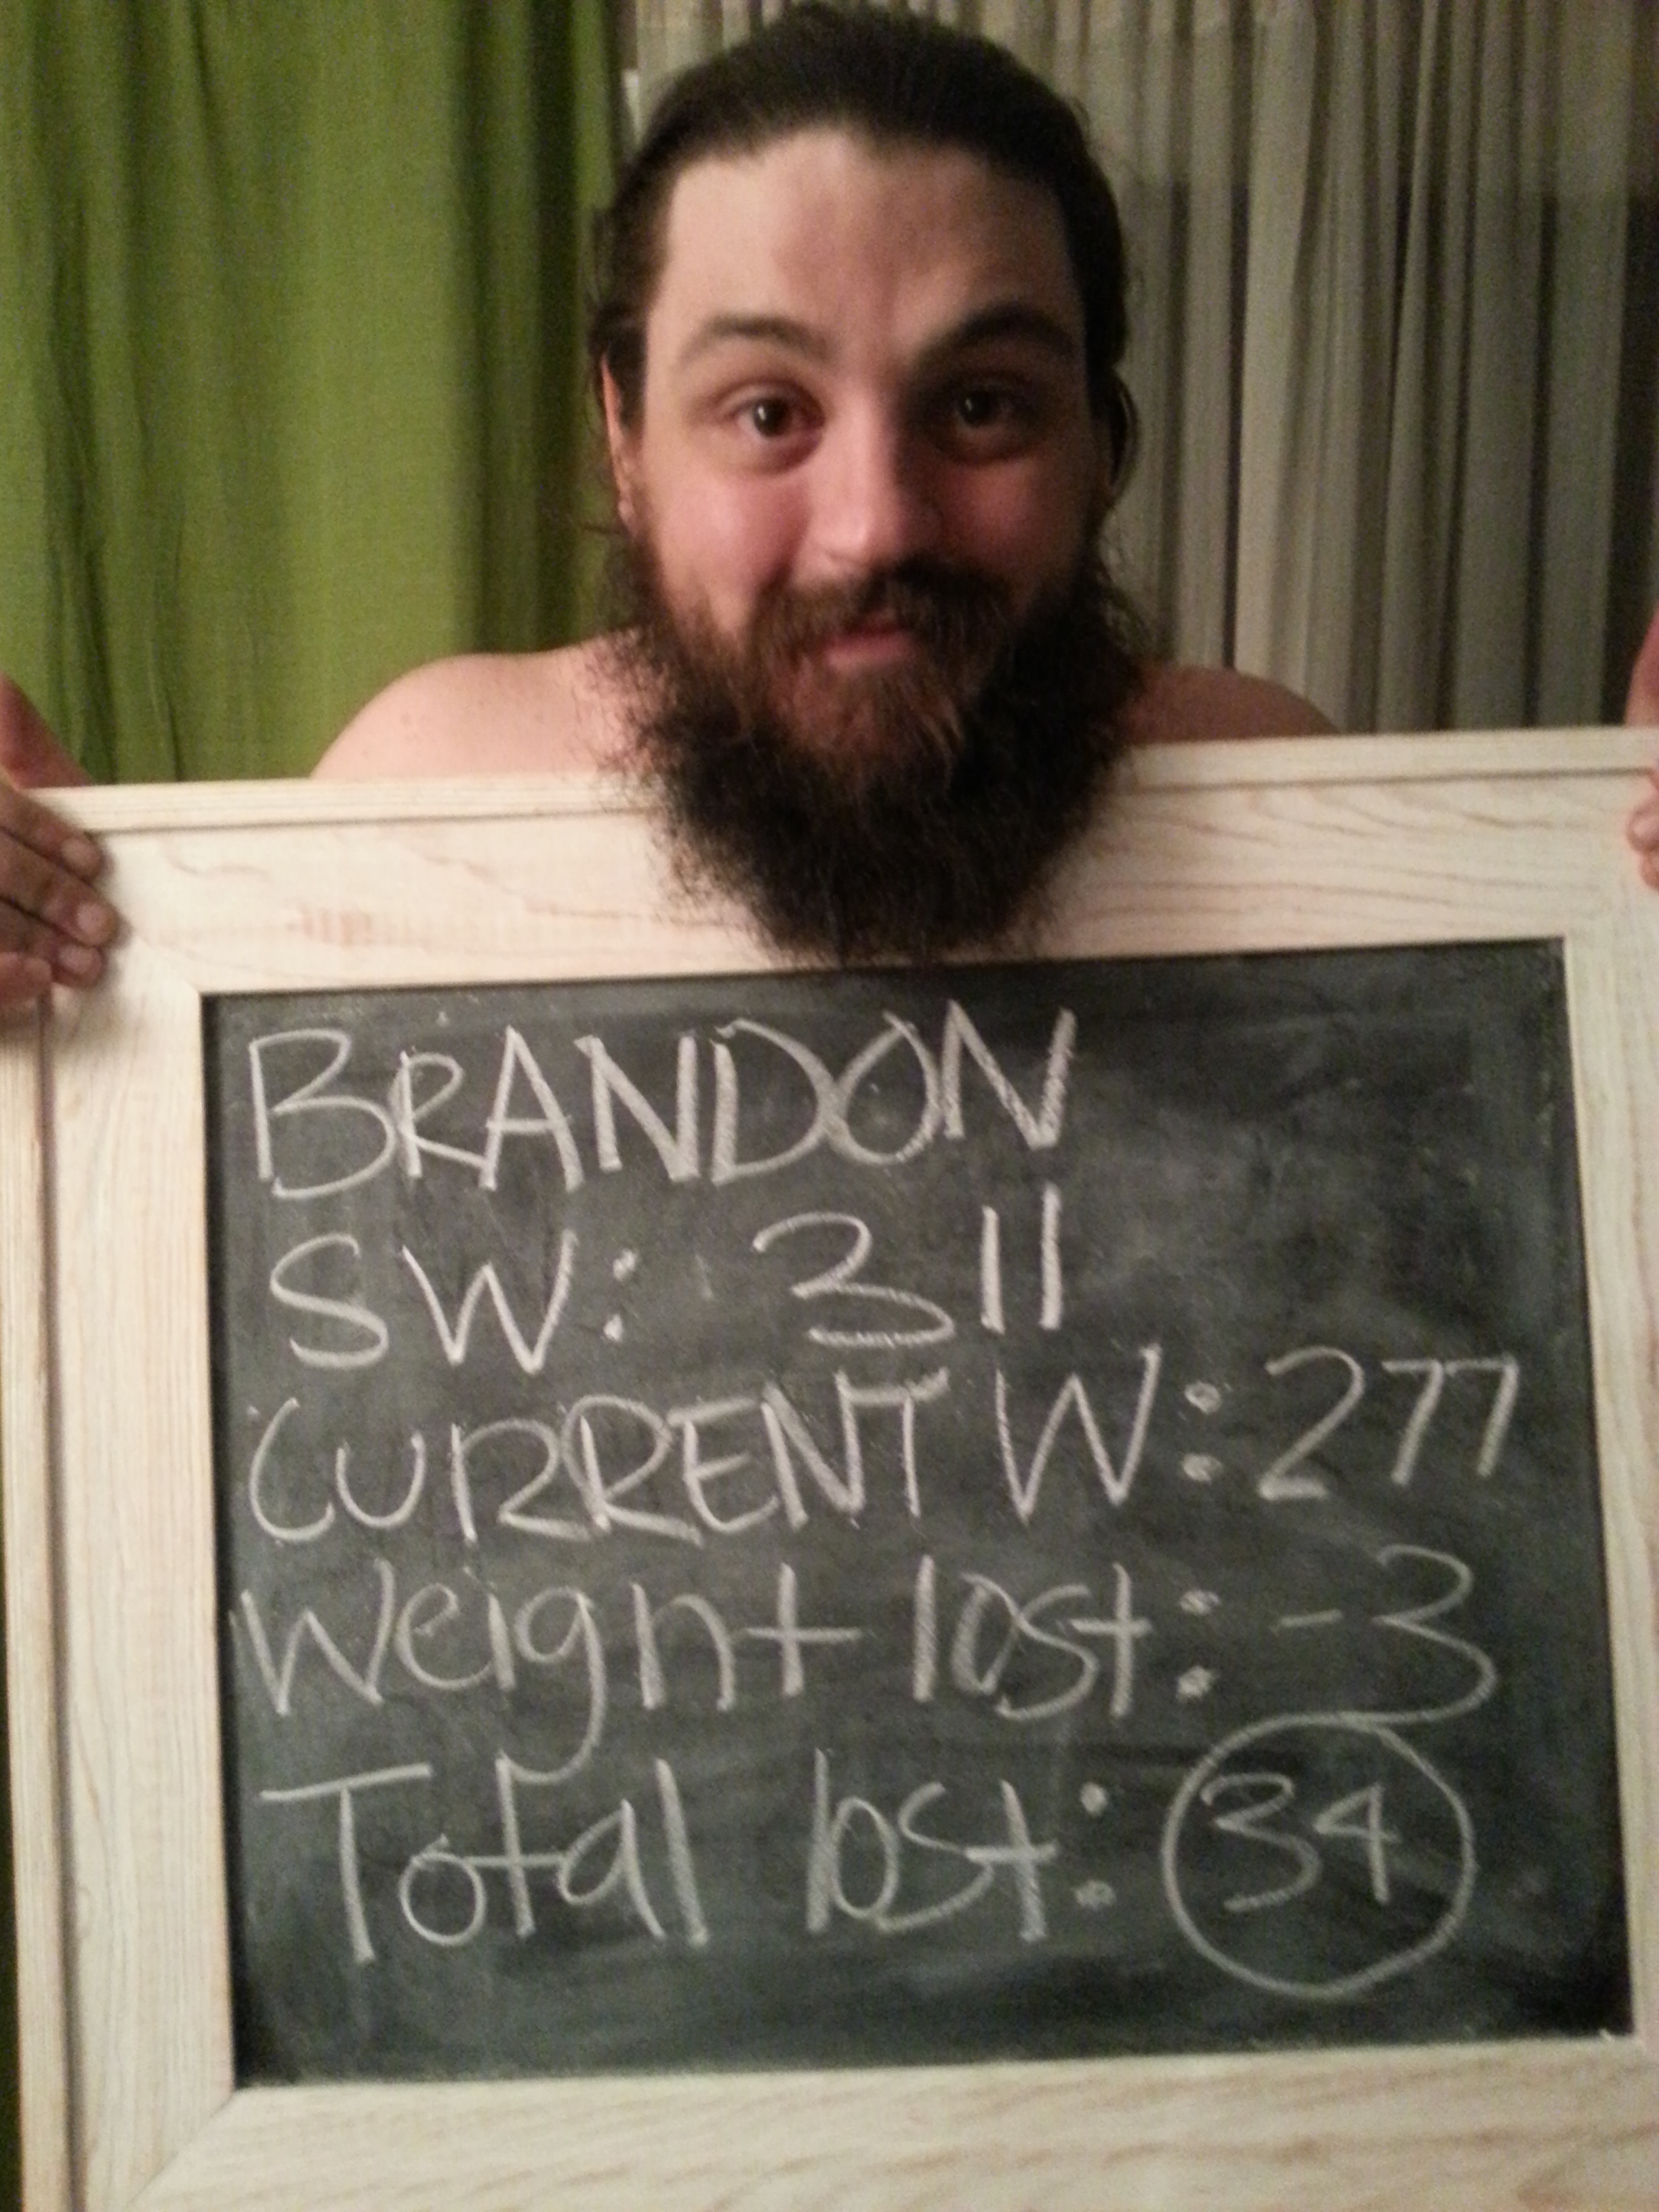 BRANDON
SW: 311
CURRENT W: 277
Weight lost: -3
Total lost: 34